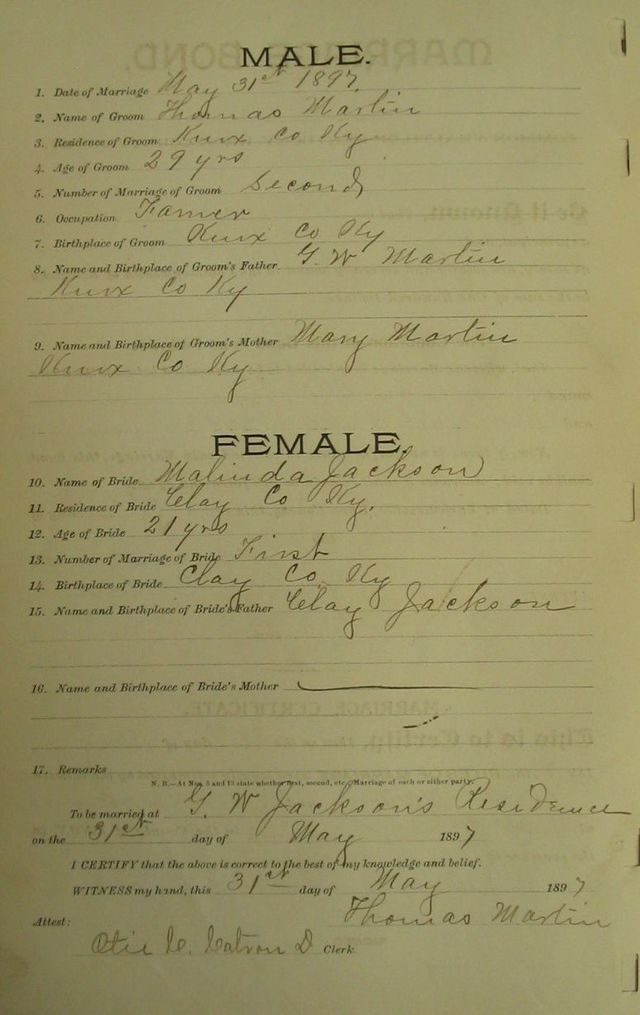 MALE.
1. Date of Marriage May 31st 1897.
2. Name of Groom Thomas Martin
3. Residence of Groom Knox Co Ky
4. Age of Groom 29 yrs
5. Number of Marriage of Groom Second
6. Occupation Farmer
7. Birthplace of Groom Knox Co Ky
8. Name and Birthplace of Groom's Father G. W Martin
Knox Co Ky
9. Name and Birthplace of Groom's Mother Mary Martin
Knox Co Ky
FEMALE.
10. Name of Bride Malinda Jackson
11. Residence of Bride Clay Co Ky.
12. Age of Bride 21 yrs
13. Number of Marriage of Bride First
14. Birthplace of Bride Clay Co Ky
15. Name and Birthplace of Bride's Father Clay Jackson
16. Name and Birthplace of Bride's Mother
17. Remarks
N. B.—At Nos. 5 and 13 state whether first, second, etc., Marriage of each or either party.
To be married at G. W Jackson's Residence
on the 31st day of May 1897
I CERTIFY that the above is correct to the best of my knowledge and belief.
WITNESS my hand, this 31st day of May 1897
Thomas Martin
Attest:
Catron D Clerk